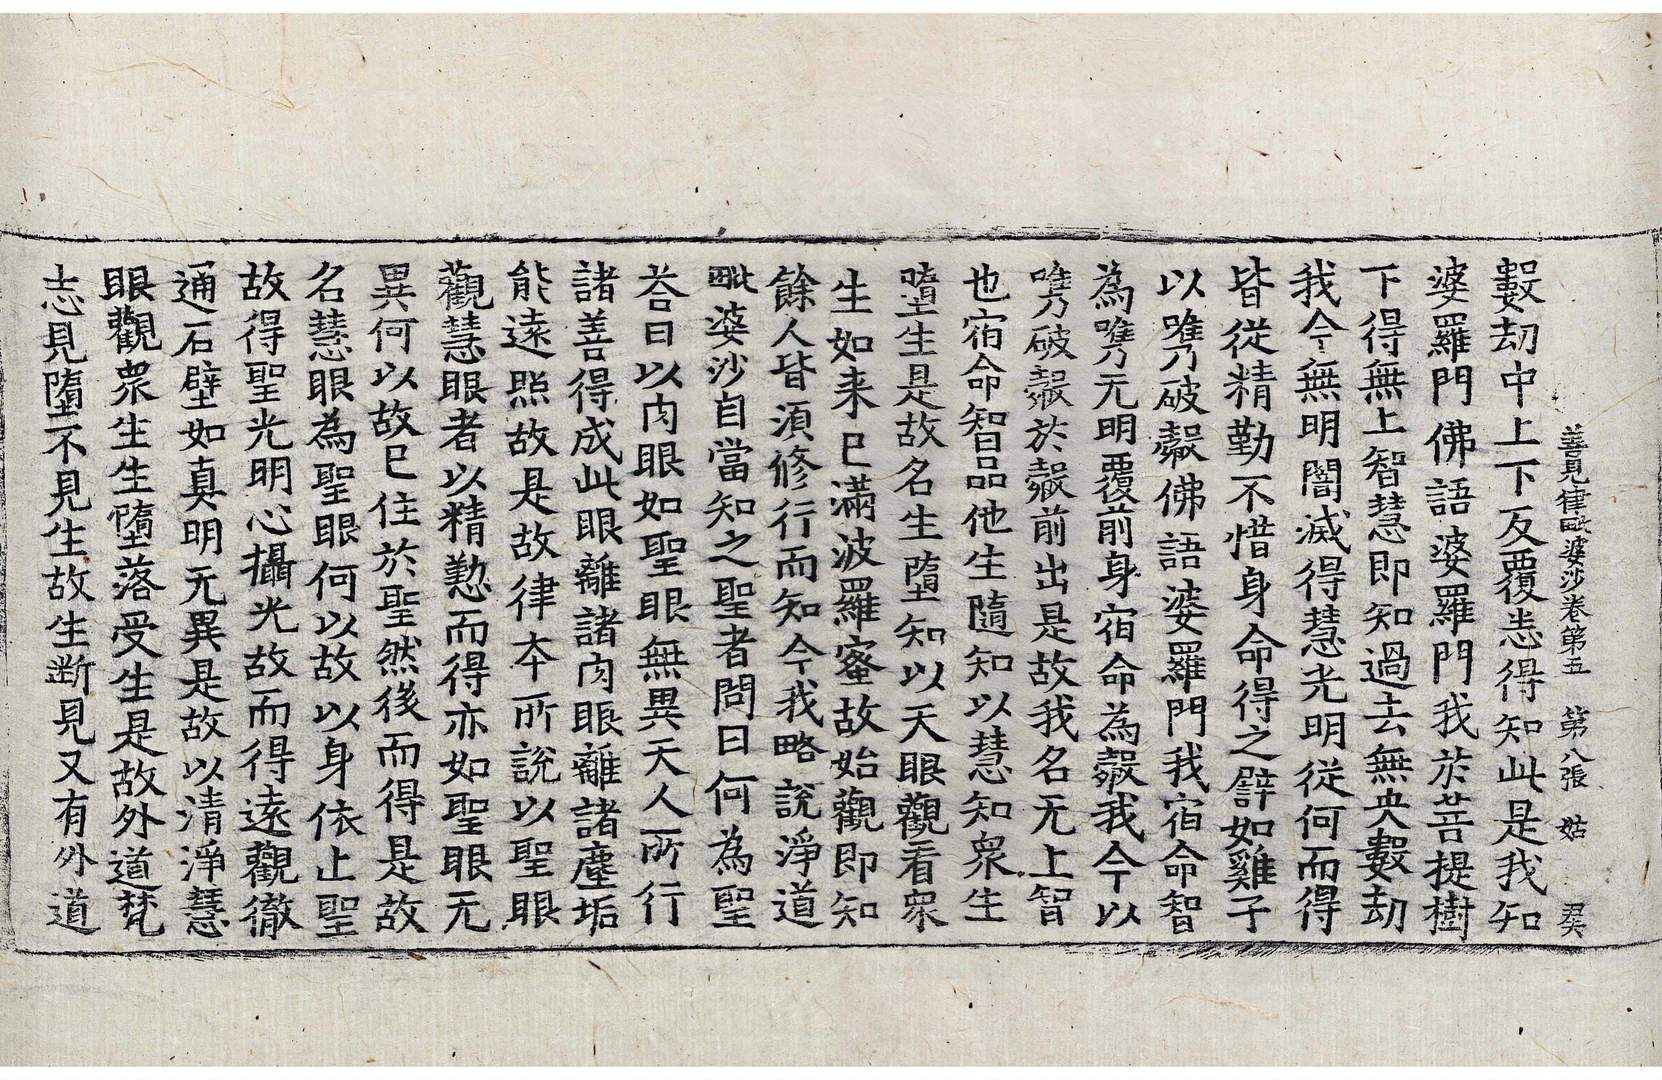 善見律毗婆沙卷第五　第八張　姑
數劫中上下反覆悉得知此是我知
婆羅門佛語婆羅門我於菩提樹
下得無上智慧即知過去無央數劫
我今無明闇滅得慧光明從何而得
皆從精勤不惜身命得之譬如雞子
以㗜破㲉佛語婆羅門我宿命智
為㗜无明覆前身宿命為㲉我今以
㗜破㲉於㲉前出是故我名无上智
也宿命智品他生隨知以慧知衆生
墮生是故名生墮知以天眼觀看衆
生如来已滿波羅蜜故始觀即知
餘人皆須修行而知今我略說淨道
毗婆沙自當知之聖者問曰何為聖
荅曰以肉眼如聖眼無異天人所行
諸善得成此眼離諸肉眼離諸塵垢
能遠照故是故律本所說以聖眼
觀慧眼者以精懃而得亦如聖眼无
異何以故已住於聖然後而得是故
名慧眼為聖眼何以故以身依止聖
故得聖光明心攝光故而得遠觀徹
通石壁如真明无異是故以清淨慧
眼觀衆生生墮落受生是故外道梵
志見墮不見生故生断見又有外道